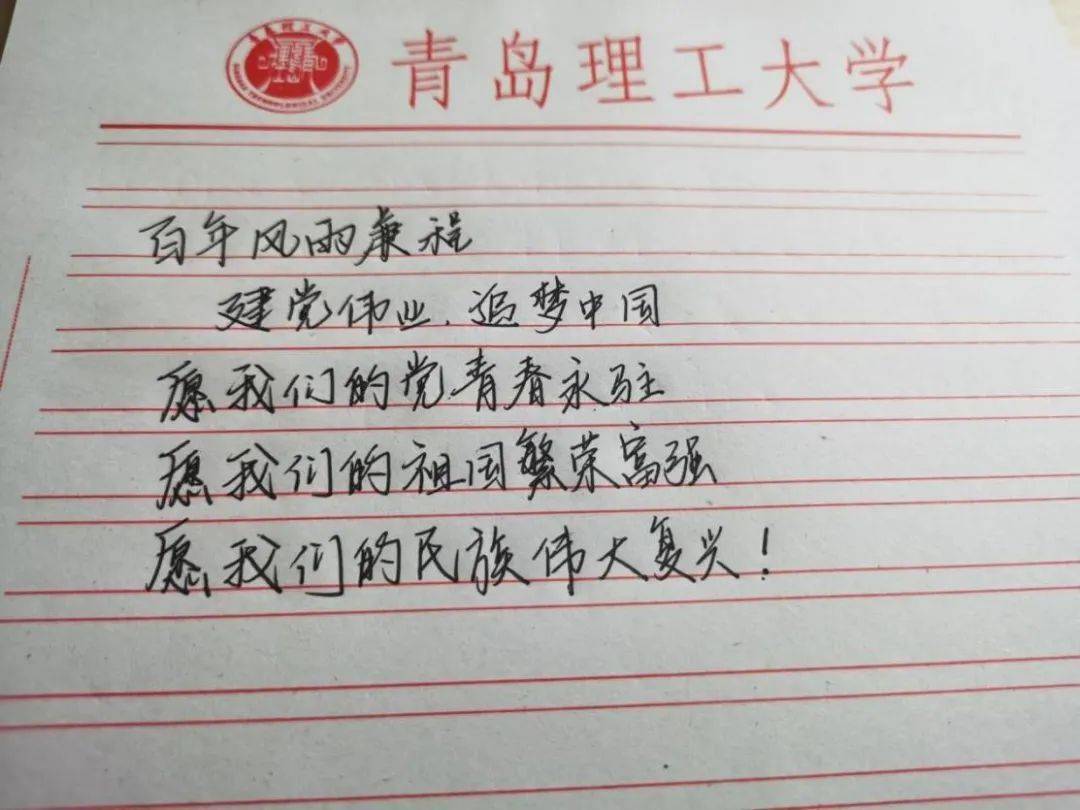 青岛理工大学
百年风雨兼程
建党伟业.追梦中国
愿我们的党青春永驻
愿我们的祖国繁荣富强
愿我们的民族伟大复兴！